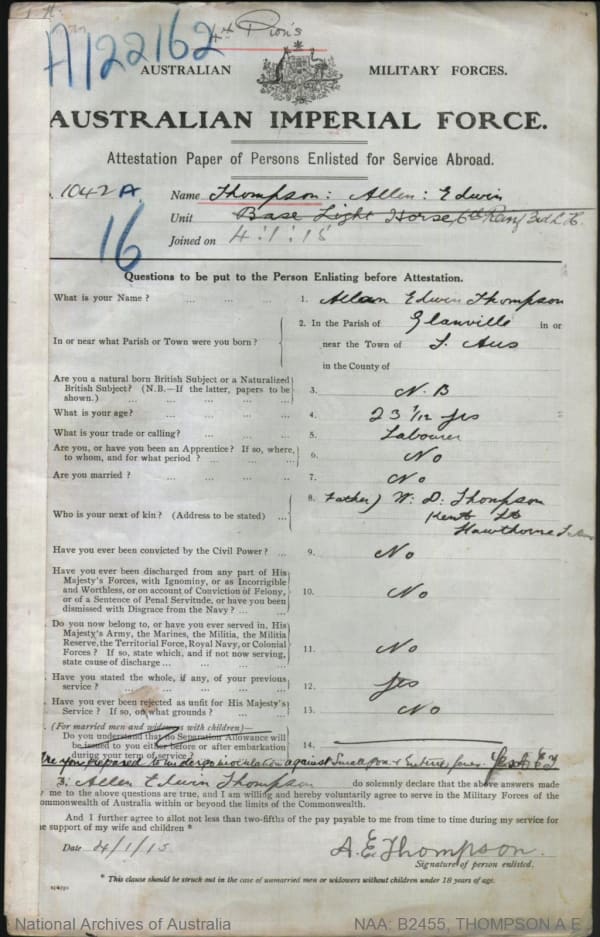 A/122162
4th Pion's
AUSTRALIAN MILITARY FORCES.
AUSTRALIAN IMPERIAL FORCE.
Attestation Paper of Persons Enlisted for Service Abroad.
1042 A. Name Thompson: Allen: Edwin
Unit Base Light Horse, 3rd L.H.
16
Joined on 4:1:15
Questions to be put to the Person Enlisting before Attestation.
What is your Name? ... ... ... 1. Allan Edwin Thompson
2. In the Parish of Glanville in or
In or near what Parish or Town were you born? ... near the Town of S. Aus
in the County of
Are you a natural born British Subject or a Naturalized
British Subject? (N.B.—If the latter, papers to be 3. N. B
shown.) ... ... ... ... ...
What is your age? ... ... ... ... 4. 23 1/12 yrs
What is your trade or calling? ... ... ... 5. Labourer
Are you, or have you been an Apprentice? If so, where,
to whom, and for what period? ... ... ... 6. No
Are you married? ... ... ... ... 7. No
8. Father) W. D. Thompson
Who is your next of kin? (Address to be stated) ... Kent St
Hawthorne S. Aus
Have you ever been convicted by the Civil Power? ... 9. No
Have you ever been discharged from any part of His
Majesty's Forces, with Ignominy, or as Incorrigible
and Worthless, or on account of Conviction of Felony, 10. No
or of a Sentence of Penal Servitude, or have you been
dismissed with Disgrace from the Navy? ... ...
Do you now belong to, or have you ever served in, His
Majesty's Army, the Marines, the Militia, the Militia
Reserve, the Territorial Force, Royal Navy, or Colonial 11. No
Forces? If so, state which, and if not now serving,
state cause of discharge ... ... ...
Have you stated the whole, if any, of your previous
service? ... ... ... ... ... 12. Yes
Have you ever been rejected as unfit for His Majesty's
Service? If so, on what grounds? ... ... 13. No
(For married men and widowers with children)—
Do you understand that no Separation Allowance will
be issued to you either before or after embarkation 14.
during your term of service?
Are you prepared to undergo inoculation against Smallpox & Enteric fever. Yes A E T
I, Allen Edwin Thompson do solemnly declare that the above answers made
me to the above questions are true, and I am willing and hereby voluntarily agree to serve in the Military Forces of the
ommonwealth of Australia within or beyond the limits of the Commonwealth.
And I further agree to allot not less than two-fifths of the pay payable to me from time to time during my service for
he support of my wife and children *
Date 4/1/15 A.E. Thompson.
Signature of person enlisted.
* This clause should be struck out in the case of unmarried men or widowers without children under 18 years of age.
National Archives of Australia NAA: B2455, THOMPSON A E